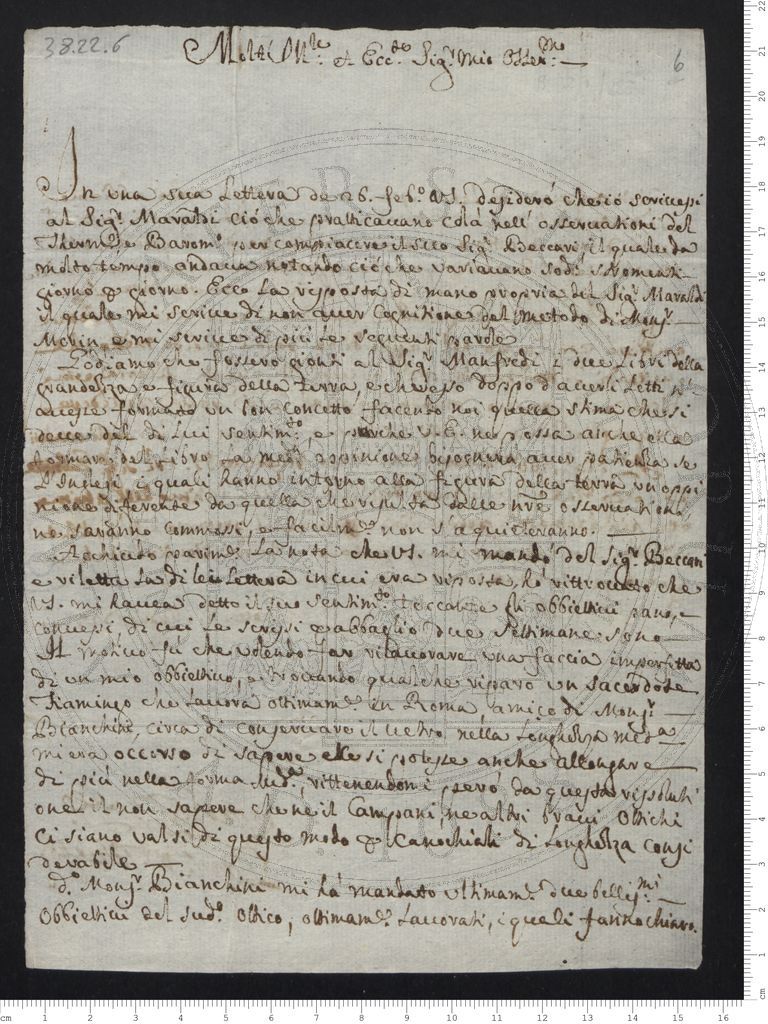 38.22.6
6
Molt' Ill.re et Ecc.te Sig.r mio Osser.mo
In una sua Lettera de 26. feb.o VS. desiderò che io scrivessi
al Sig.r Maraldi ciò che pratticavano colà nell' osservationi del
Therm.o e Barom.o per compiacere il suo Sig.r Beccari il quale da
molto tempo andava notando ciò che variavano sodi stromenti
giorno p giorno. Ecco la risposta di mano propria del Sig.r Maraldi
il quale mi scrive di non aver cognitione del metodo di Mons.r
e mi scrive di più le seguenti parole
che fossero gionti al Sig.r Manfredi i due Libri della
grandezza e figura della terra, e che esso doppo d'averli letti n'
avesse formato un bon concetto facendo noi quella stima che si
deve del di lui sentim.to e perche V.S. ne possa anche ella
formare del Libro la med.a oppinione bisognerà aver patienza se
l'Inglesi i quali hanno intorno alla figura della terra un oppi
nione diferente da quella che risulta dalle nre osservationi
ne saranno commossi, e facilm.te non s'aquieteranno.
Acchiudo parim.te la nota che VS. mi mandò del Sig.r Beccari
e riletta la di lei Lettera in cui era risposta, ho ritrovato che
VS. mi havea detto il suo sentim.to toccante gli obbiettivi piano
convessi, di cui le scrissi p abbaglio due settimane sono
Il motivo fu che volendo far rilavorare una faccia imperfetta
di un mio obbiettivo, e trovando qualche riparo un sacerdote
Fiamingo che lavora ottimam.te in Roma amico di Mons.r
Bianchini circa di conservare il vetro nella longhezza med.a
mi era occorso di sapere che si potesse anche allongare
di più nella forma med.a, rittenendomi però da questa rissoluti
one il non sapere che ne il Campani, ne altri bravi Ottichi
ci siano valsi di questo modo p canochiali di longhezza consi
derabile
d.o Mons.r Bianchini mi hà mandato ultimam.te due belliss.mi
obbiettivi del sud.o ottico, ottimam.te lavorati, i quali fanno chiaro.